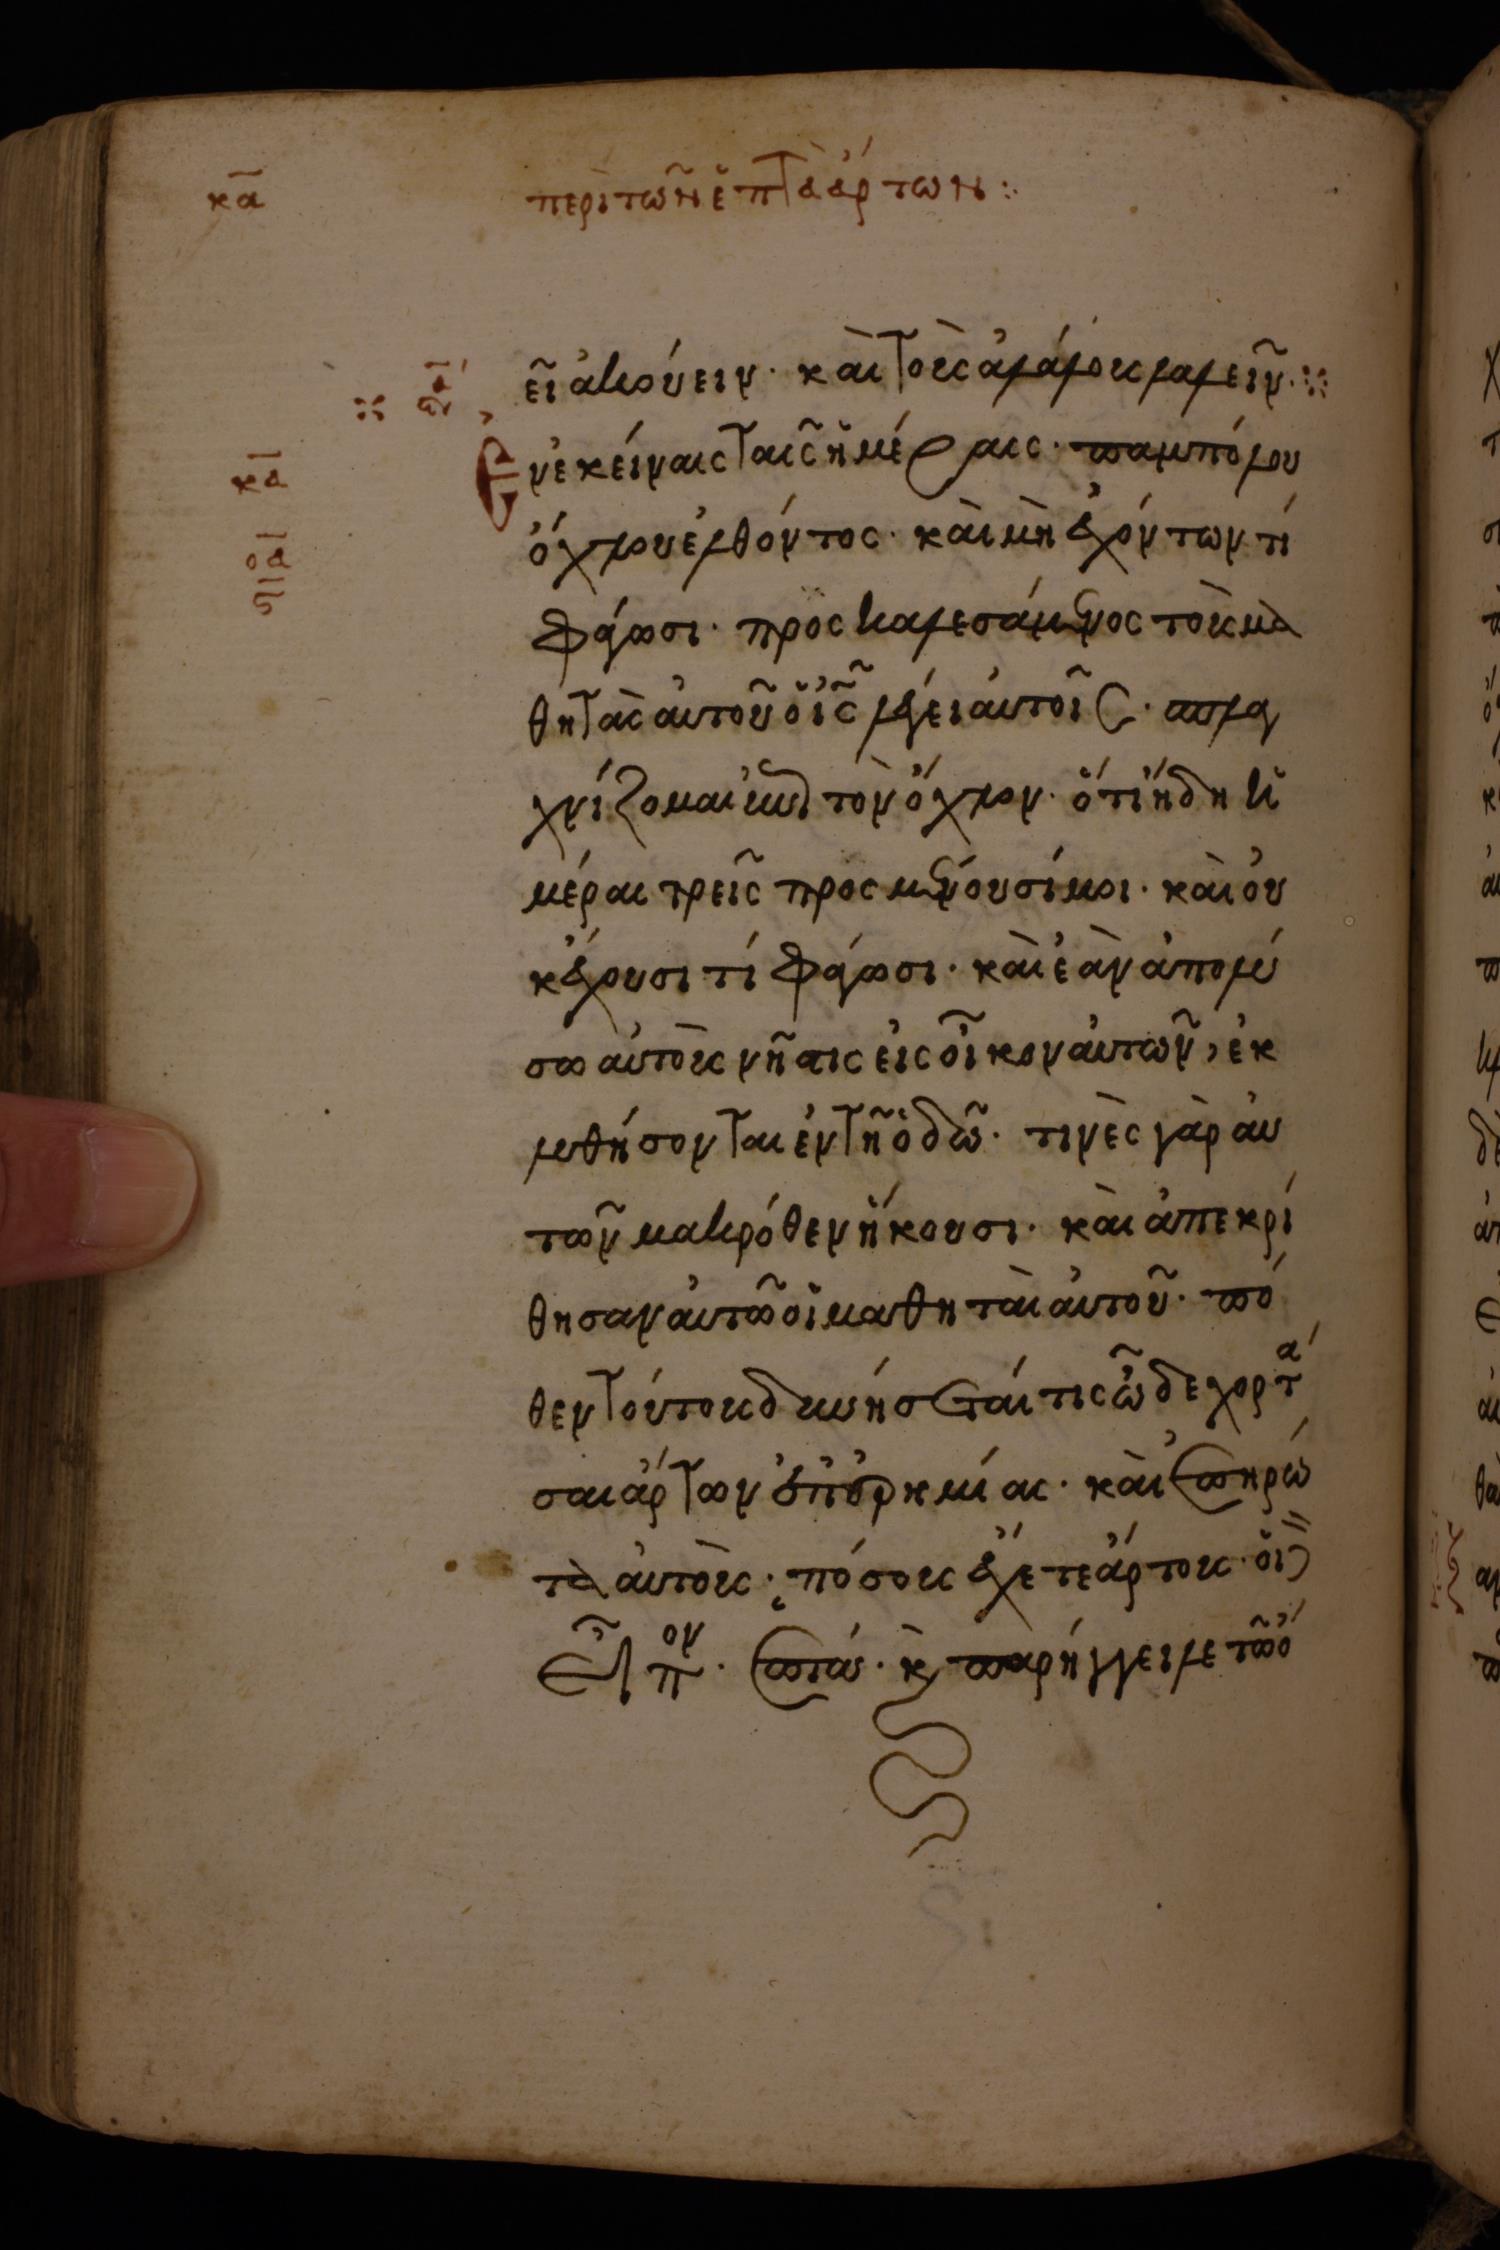 κα
περὶ τῶν ἑπτὰ ἄρτων :
εῖ ἀκούειν · καὶ τοὺς ἀλάλους λαλεῖν ·
Ἐν ἐκείναις ταῖς ἡμέραις · παμπόλου
ὄχλου ἐλθόντος · καὶ μὴ ἐχόντων τί
φάγωσι · προσκαλεσάμενος τοὺς μα
θητὰς αὐτοῦ ὁ ις λέγει αὐτοῖς · σπλα
χνίζομαι ἐπὶ τὸν ὄχλον · ὅτι ἤδη ἡ
μέραι τρεῖς προσμένουσί μοι · καὶ οὐ
κ ἔχουσι τί φάγωσι · καὶ ἐὰν ἀπολύ
σω αὐτοὺς νήστις εἰς οἶκον αὐτῶν, ἐκ
λυθήσονται ἐν τῇ ὁδῶ · τινὲς γὰρ αὐ
τῶν μακρόθεν ἥκουσι · καὶ ἀπεκρί
θησαν αὐτῶ οἱ μαθηταὶ αὐτοῦ · πό
θεν τούτους δυνήσεταί τις ὧδε χορτά
σαι ἄρτων ἐπ' ἐρημίας · καὶ ἐπηρώ
τα αὐτούς · πόσους ἔχετε ἄρτους · οἱ δὲ
εἶπον · ἑπτά · κ παρήγγειλε τῶ ὄ